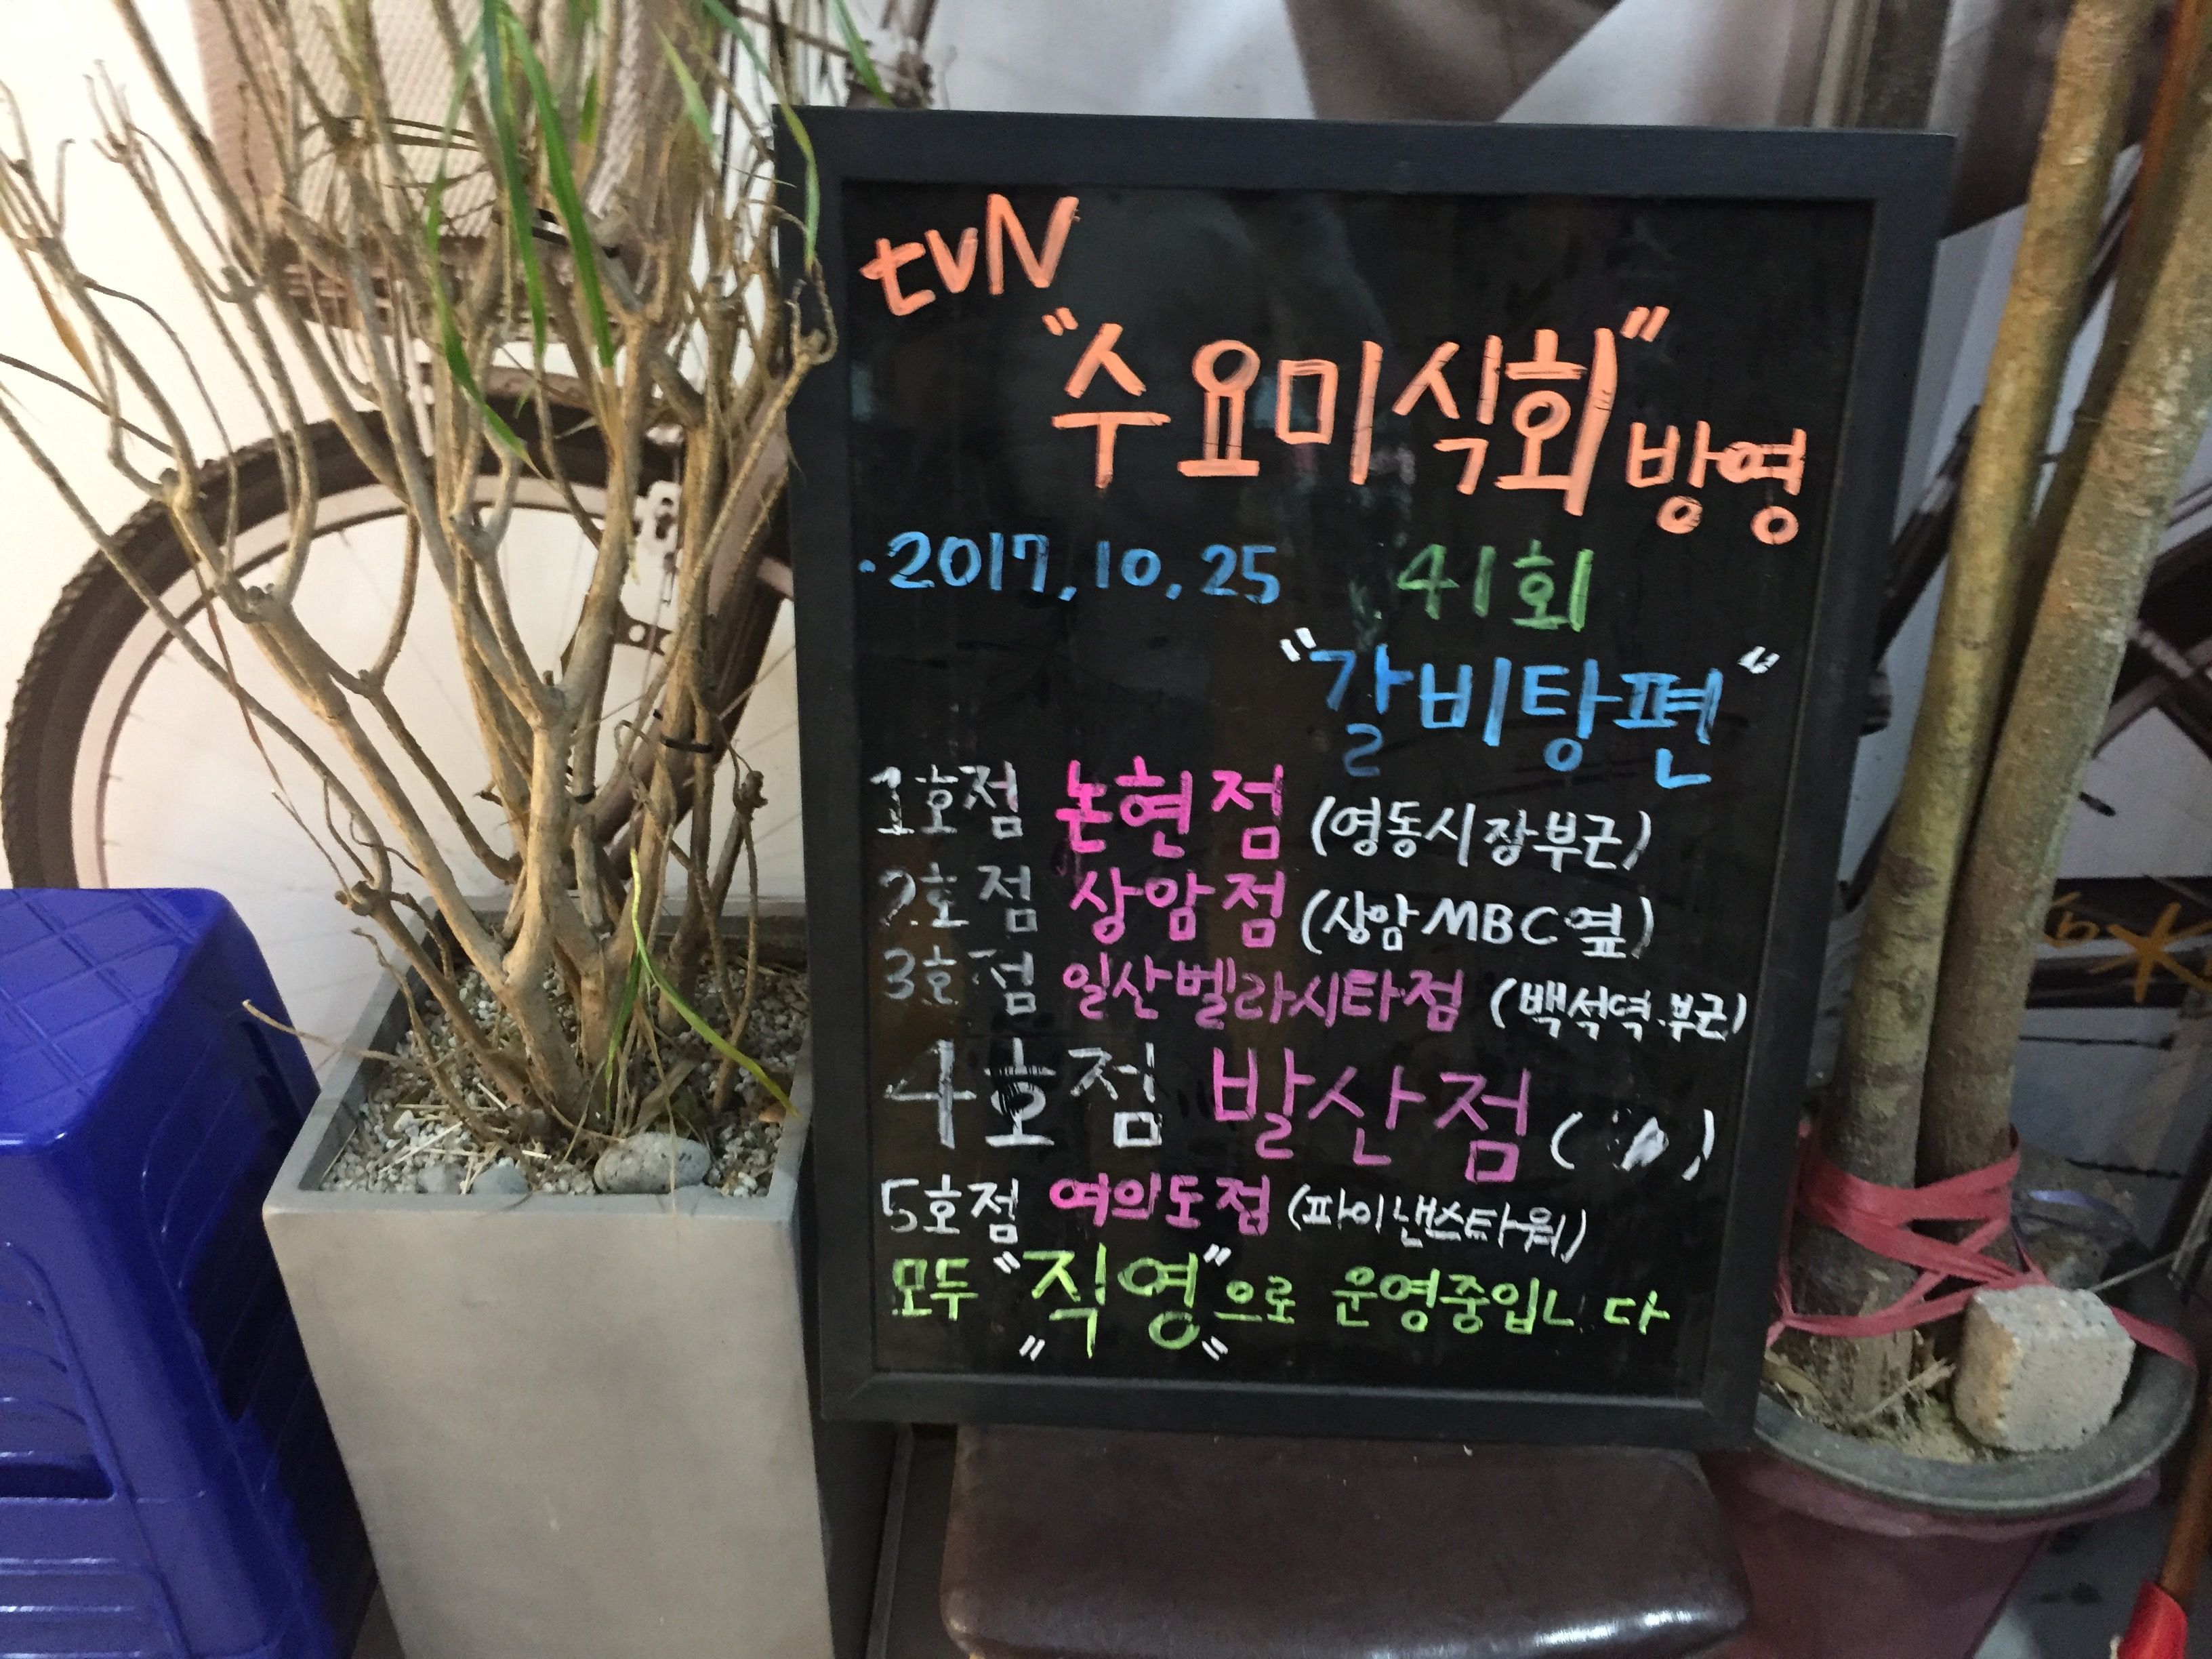 tvN
"수요미식회" 방영
·2017.10.25 41회
"갈비탕편"
1호점 논현점 (영동시장부근)
2호점 상암점 (상암MBC옆)
3호점 일산벨라시타점 (백석역.부근)
4호점 발산점 ( )
5호점 여의도점 (파이낸스타워)
모두 "직영"으로 운영중입니다